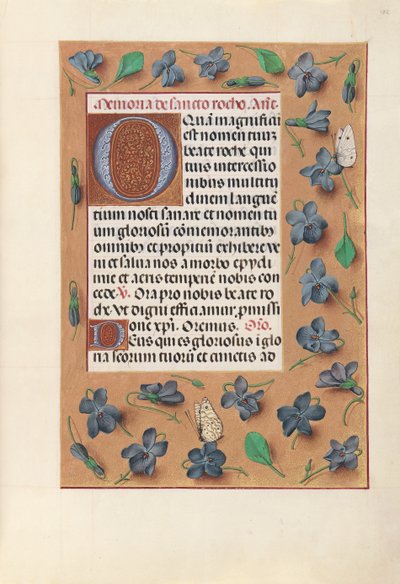 Memoria de sancto rocho. Ant.
O Quā magnificū
est nomen tuū
beate roche qui
tuis intercessio
nibus multitu
dinem languē
tium nosti sanare et nomen tu
um gloriosū cōmemorantibꝯ
omnibꝯ et propitiū exhibere ve
ni et salua nos a morbo epydi
mie et aeris temperiē nobis con
cede. V. Ora pro nobis beate ro
che. Vt digni efficiamur pmissi
one xpi. Oremus. Oro.
Deus qui es gloriosus ī glo
ria sctorum tuorū et cunctis ad